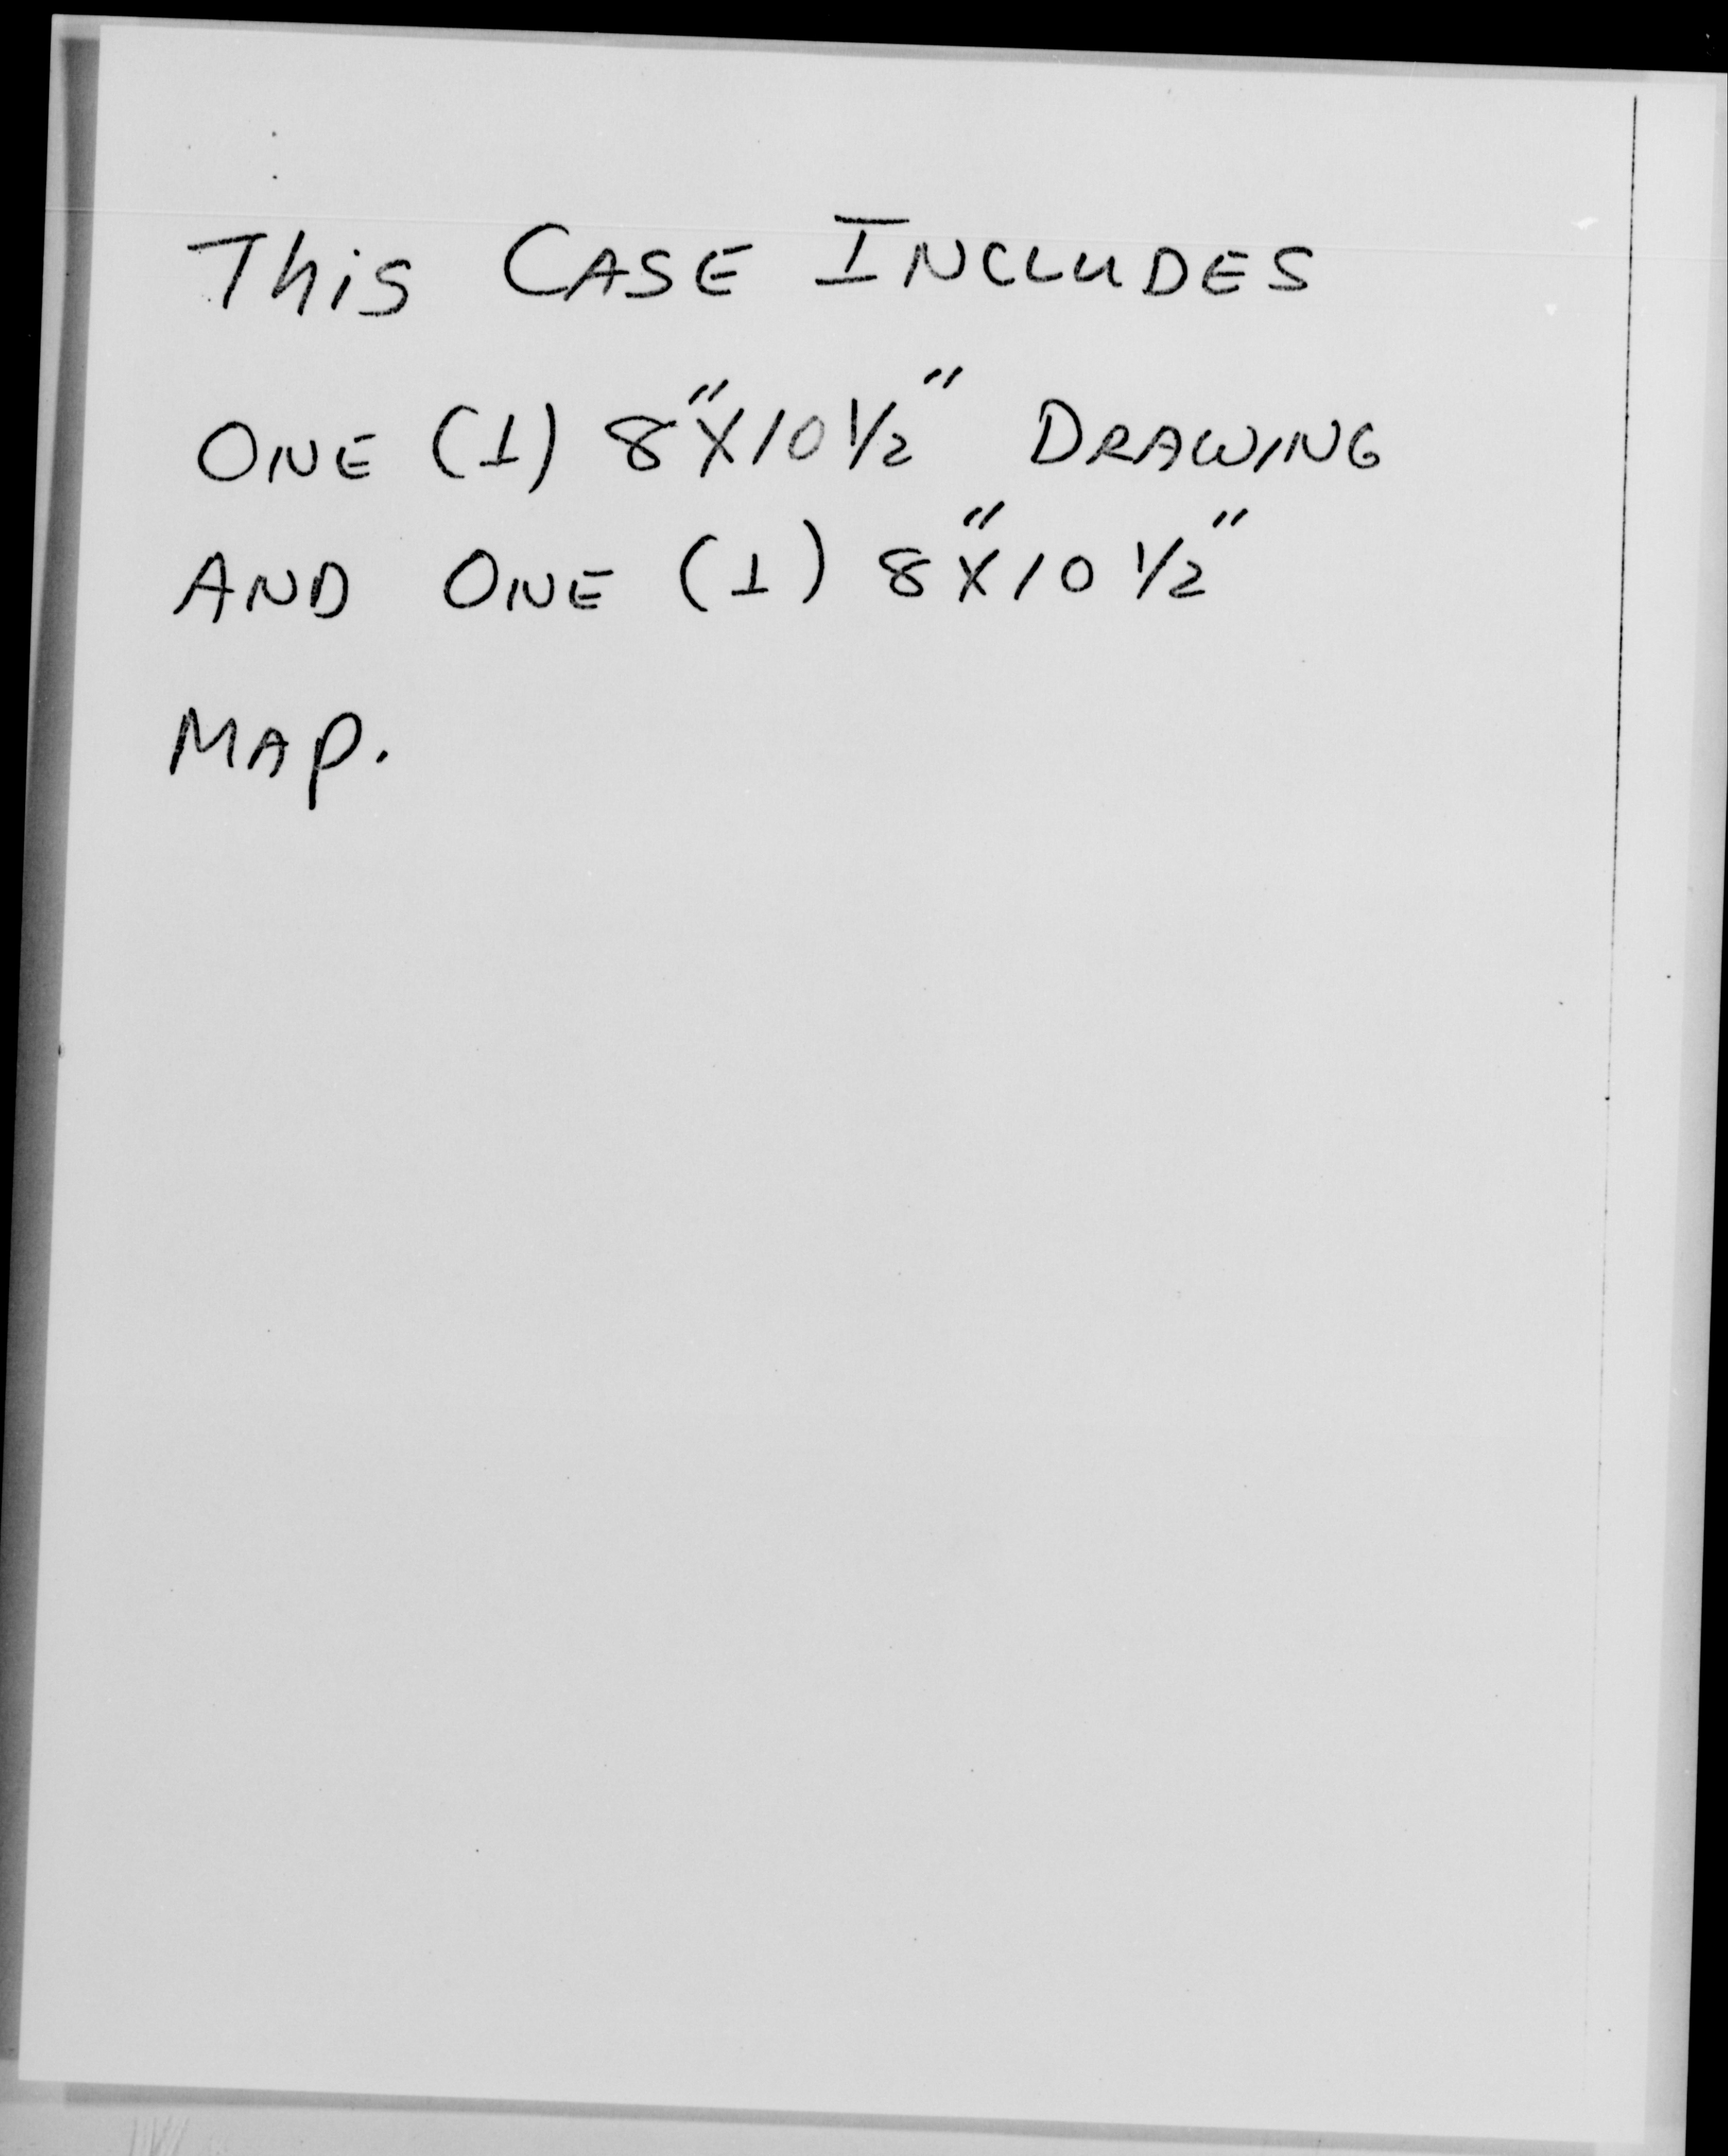 This CASE INCLUDES
ONE (1) 8"X10 1/2" DRAWING
AND ONE (1) 8"X10 1/2"
MAP.